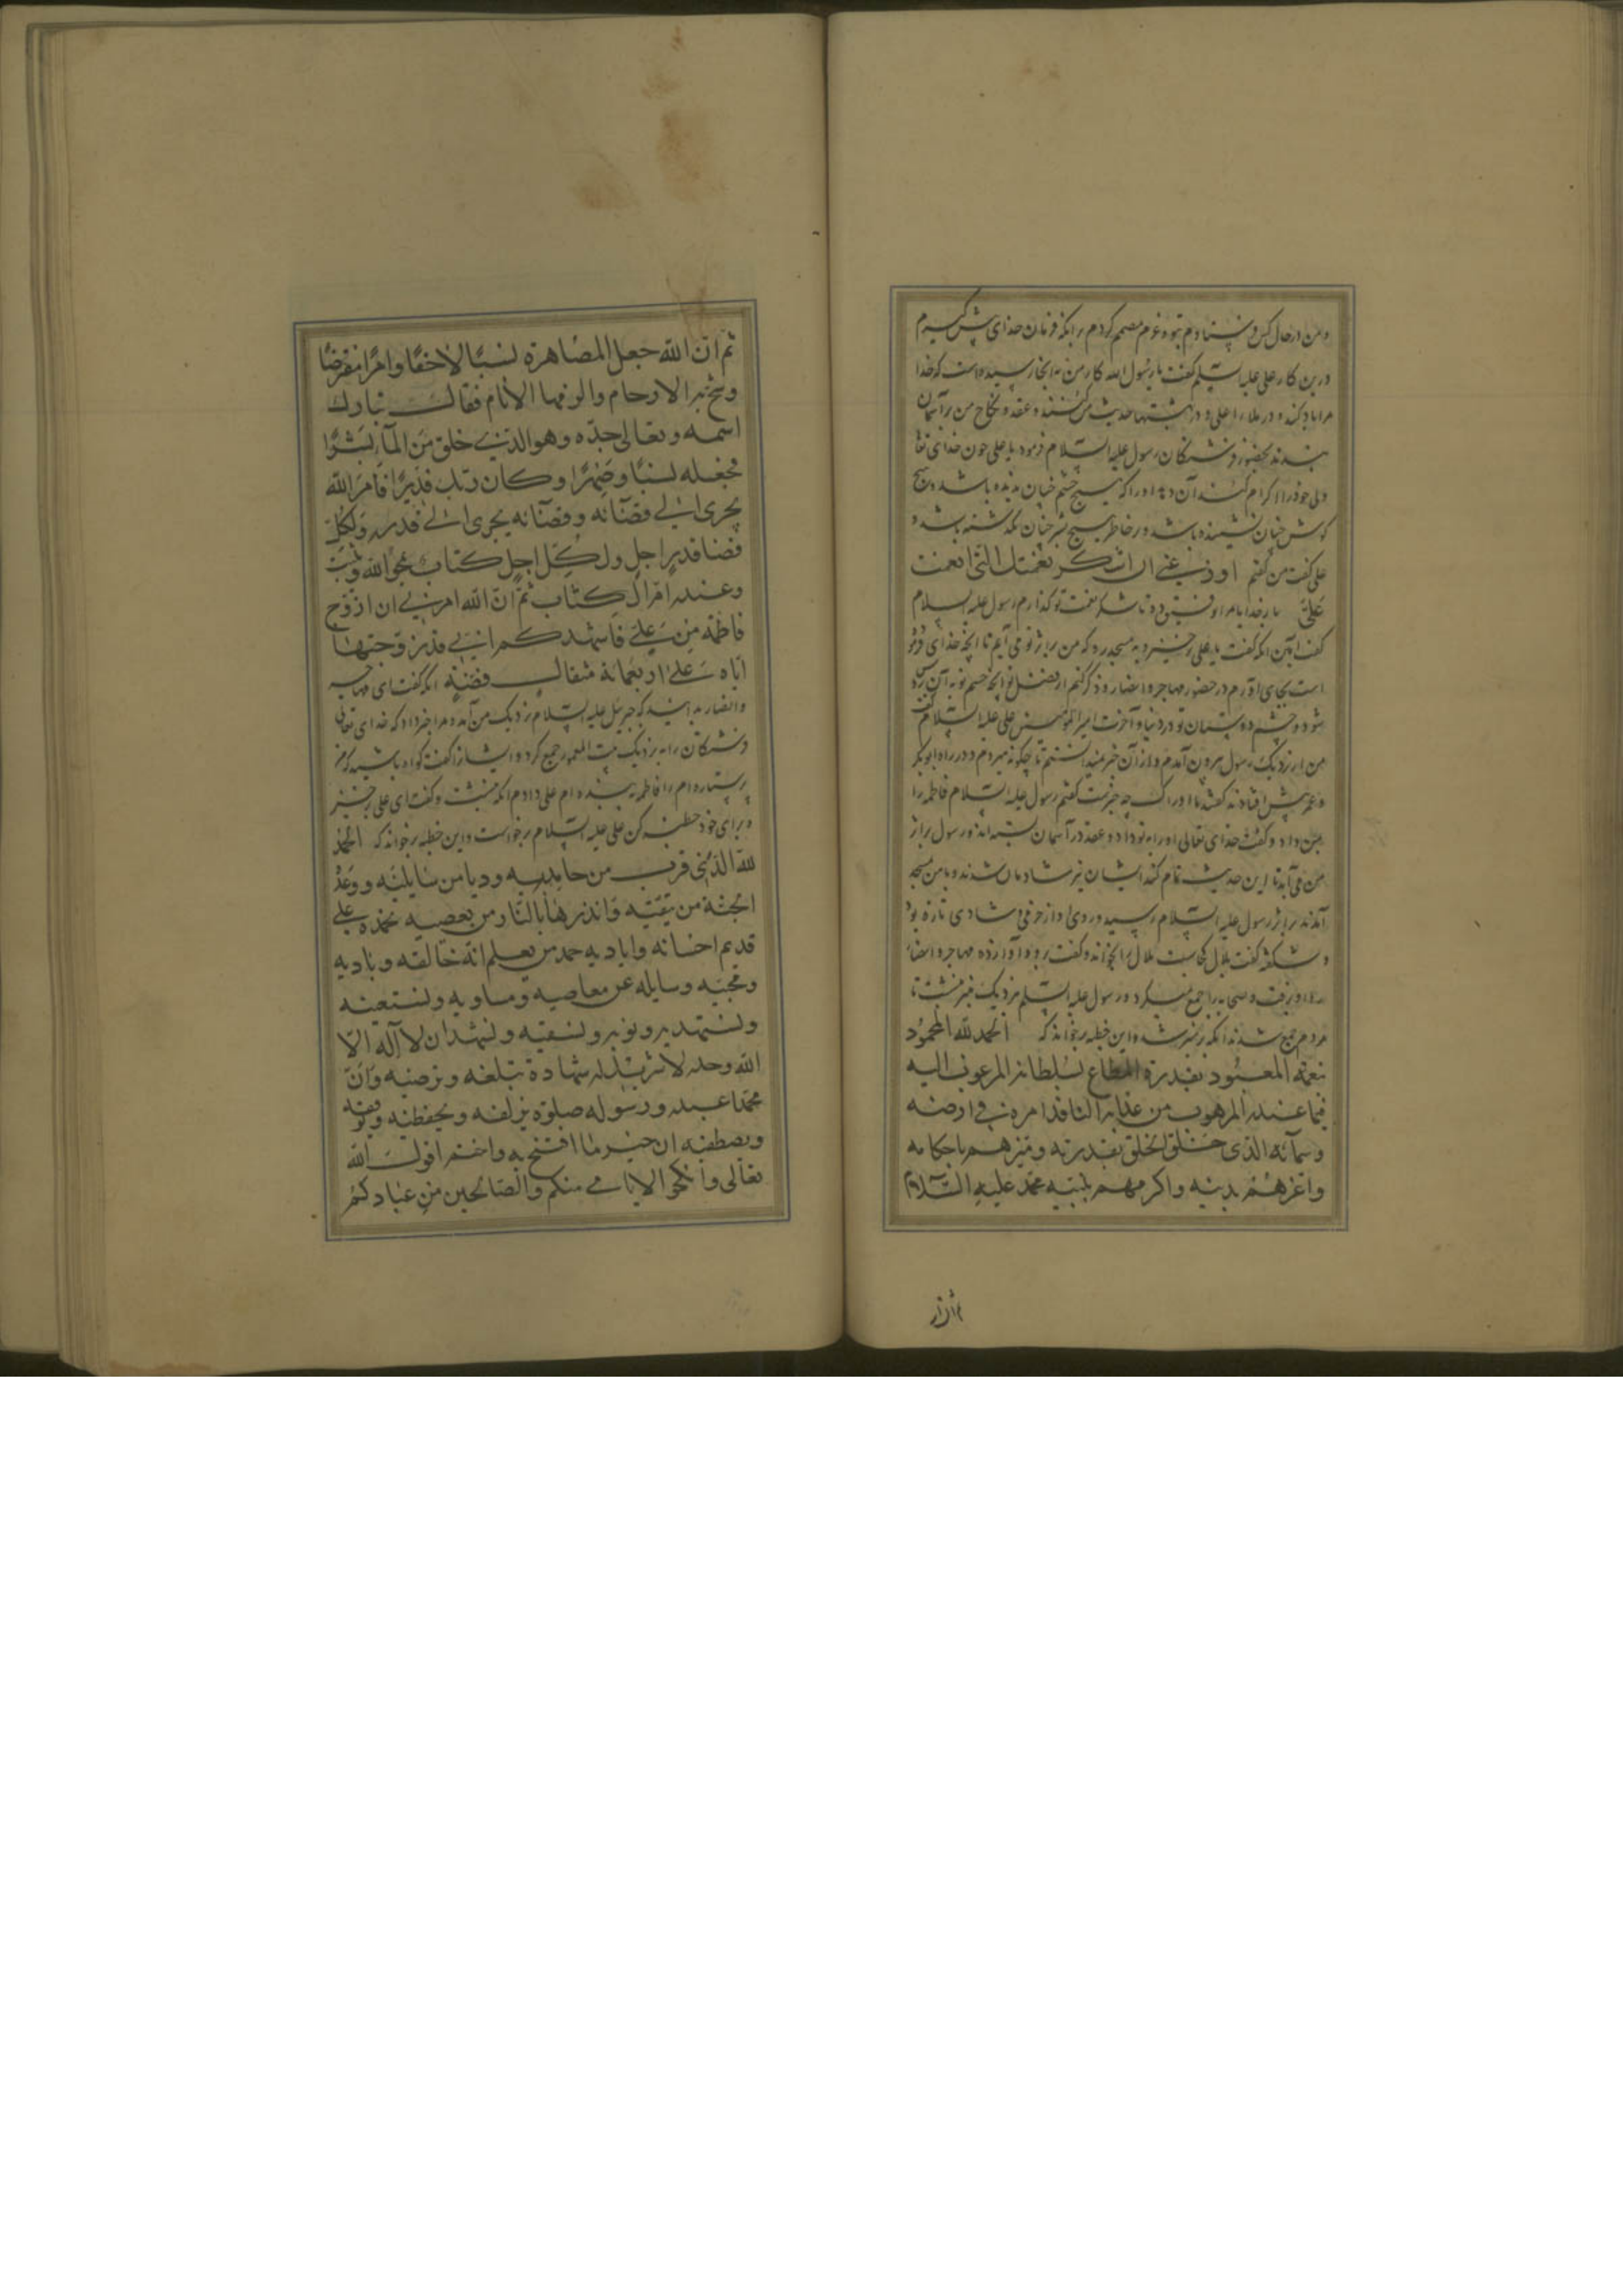 و من در حال کس فرستادم بتو و عزم مصمم کردم برانکه فرمان خدای پیش گیرم
درین کار علی علیه السلم گفت یا رسول الله کار من بدانجا رسیده است که خدا
مرا یاد کند و در ملاء اعلی و در بهشتها حدیث من کنند و عقد و نکاح من بر آسمان
بندند بحضور فرشتگان رسول علیه السلام فرمود یا علی چون خدای تعا
ولی خود را اکرام کند آن دهد او را که هیچ چشم چنان ندیده باشد و هیچ
کوش چنان نشنیده باشد و در خاطر هیچ بشر چنان نگذشته باشد
علی گفت من گفتم اوزعنی ان اشکر نعمتک التی انعمت
علیّ بار خدایا مرا توفیق ده تا شکر نعمت تو گذارم رسول علیه السلام
گفت آمین انکه گفت یا علی برخیز و به مسجد رو که من بر اثر تو می آیم تا آنچه خدای فرمو
است بجای آورم در حضور مهاجر و انصار و ذکر کنم از فضل تو آنچه چشم تو به آن روشن
شود و چشم دوستان تو در دنیا و آخرت امیر المؤمنین علی علیه السلام گفت
من از نزدیک رسول بیرون آمدم و از آن خرمی ندانستم تا چگونه میروم در راه ابوبکر
و عمر پیش افتادند گفتند یا ابا الحسن چه خبرست گفتم رسول علیه السلام فاطمه را
بمن داد و گفت خدای تعالی او را به تو داد و عقد در آسمان بسته اند و رسول بر اثر
من می آید تا این حدیث تمام کند ایشان نیز شادمان شدند و با من مسجد
آمدند بر اثر رسول علیه السلام رسید و روی او از خرمی و شادی تازه بود
و شکفته گفت بلال کجاست بلال را بخواند و گفت برو و آواز ده مهاجر و انصار
را او برفت و صحابه را جمع میکرد و رسول علیه السلم نزدیک منبر بنشست تا
مردم جمع شدند انکه بر منبر شد و این خطبه بر خواند که الحمد لله المحمود
بنعمته المعبود بقدرته المطاع بسلطانه المرغوب الیه
فیما عنده المرهوب من عذابه النافذ امره فی ارضه
وسمائه الذی خلق الخلق بقدرته ومیزهم باحکامه
واعزهم بدینه واکرمهم بنبیه محمد علیه السلام
ثم ان الله
ثم ان الله جعل المصاهرة نسبا لاحقا وامرا مفترضا
وشج به الارحام والزمها الانام فقال تبارک
اسمه وتعالی جده وهو الذی خلق من المآء بشرا
فجعله نسبا وصهرا وکان ربک قدیرا فامر الله
یجری الی قضآئه وقضآئه یجری الی قدره ولکل
قضاء قدر اجل ولکل اجل کتاب یمحو الله ویثبت
وعنده ام الکتاب ثم ان الله امرنی ان ازوج
فاطمه من علی فاشهدکم انی قد زوجتها
ایاه علی اربعمائة مثقال فضة انکه گفت ای مهاجر
وانصار بدانید که جبرئیل علیه السلام نزدیک من آمد و مرا خبر داد که خدای تعالی
فرشتگان را به نزدیک بیت المعمور جمع کرد و ایشان را گفت گواه باشید که من
پرستارم را فاطمه به بنده ام علی دادم انکه بنشست و گفت ای علی برخیز
و برای خود خطبه کن علی علیه السلام برخواست و این خطبه بر خواند که الحمد
لله الذی قرب من حامدیه ودنا من سایلیه ووعد
الجنة من یتقیه وانذر بالنار من یعصیه نحمده علی
قدیم احسانه وایادیه حمد من یعلم انه خالقه وبادیه
وممیته وسایله عن معاصیه ومساویه ونستعینه
ونستهدیه ونؤمن به ونستغفره ونشهد ان لا آله الا
الله وحده لا شریک له شهادة تبلغه وترضیه وان
محمدا عبده ورسوله صلوة تزلفه وتحفظیه وترفعه
وتصطفیه ان خیر ما افتتح به واختتم قول الله
تعالی وانکحوا الایامی منکم والصالحین من عبادکم